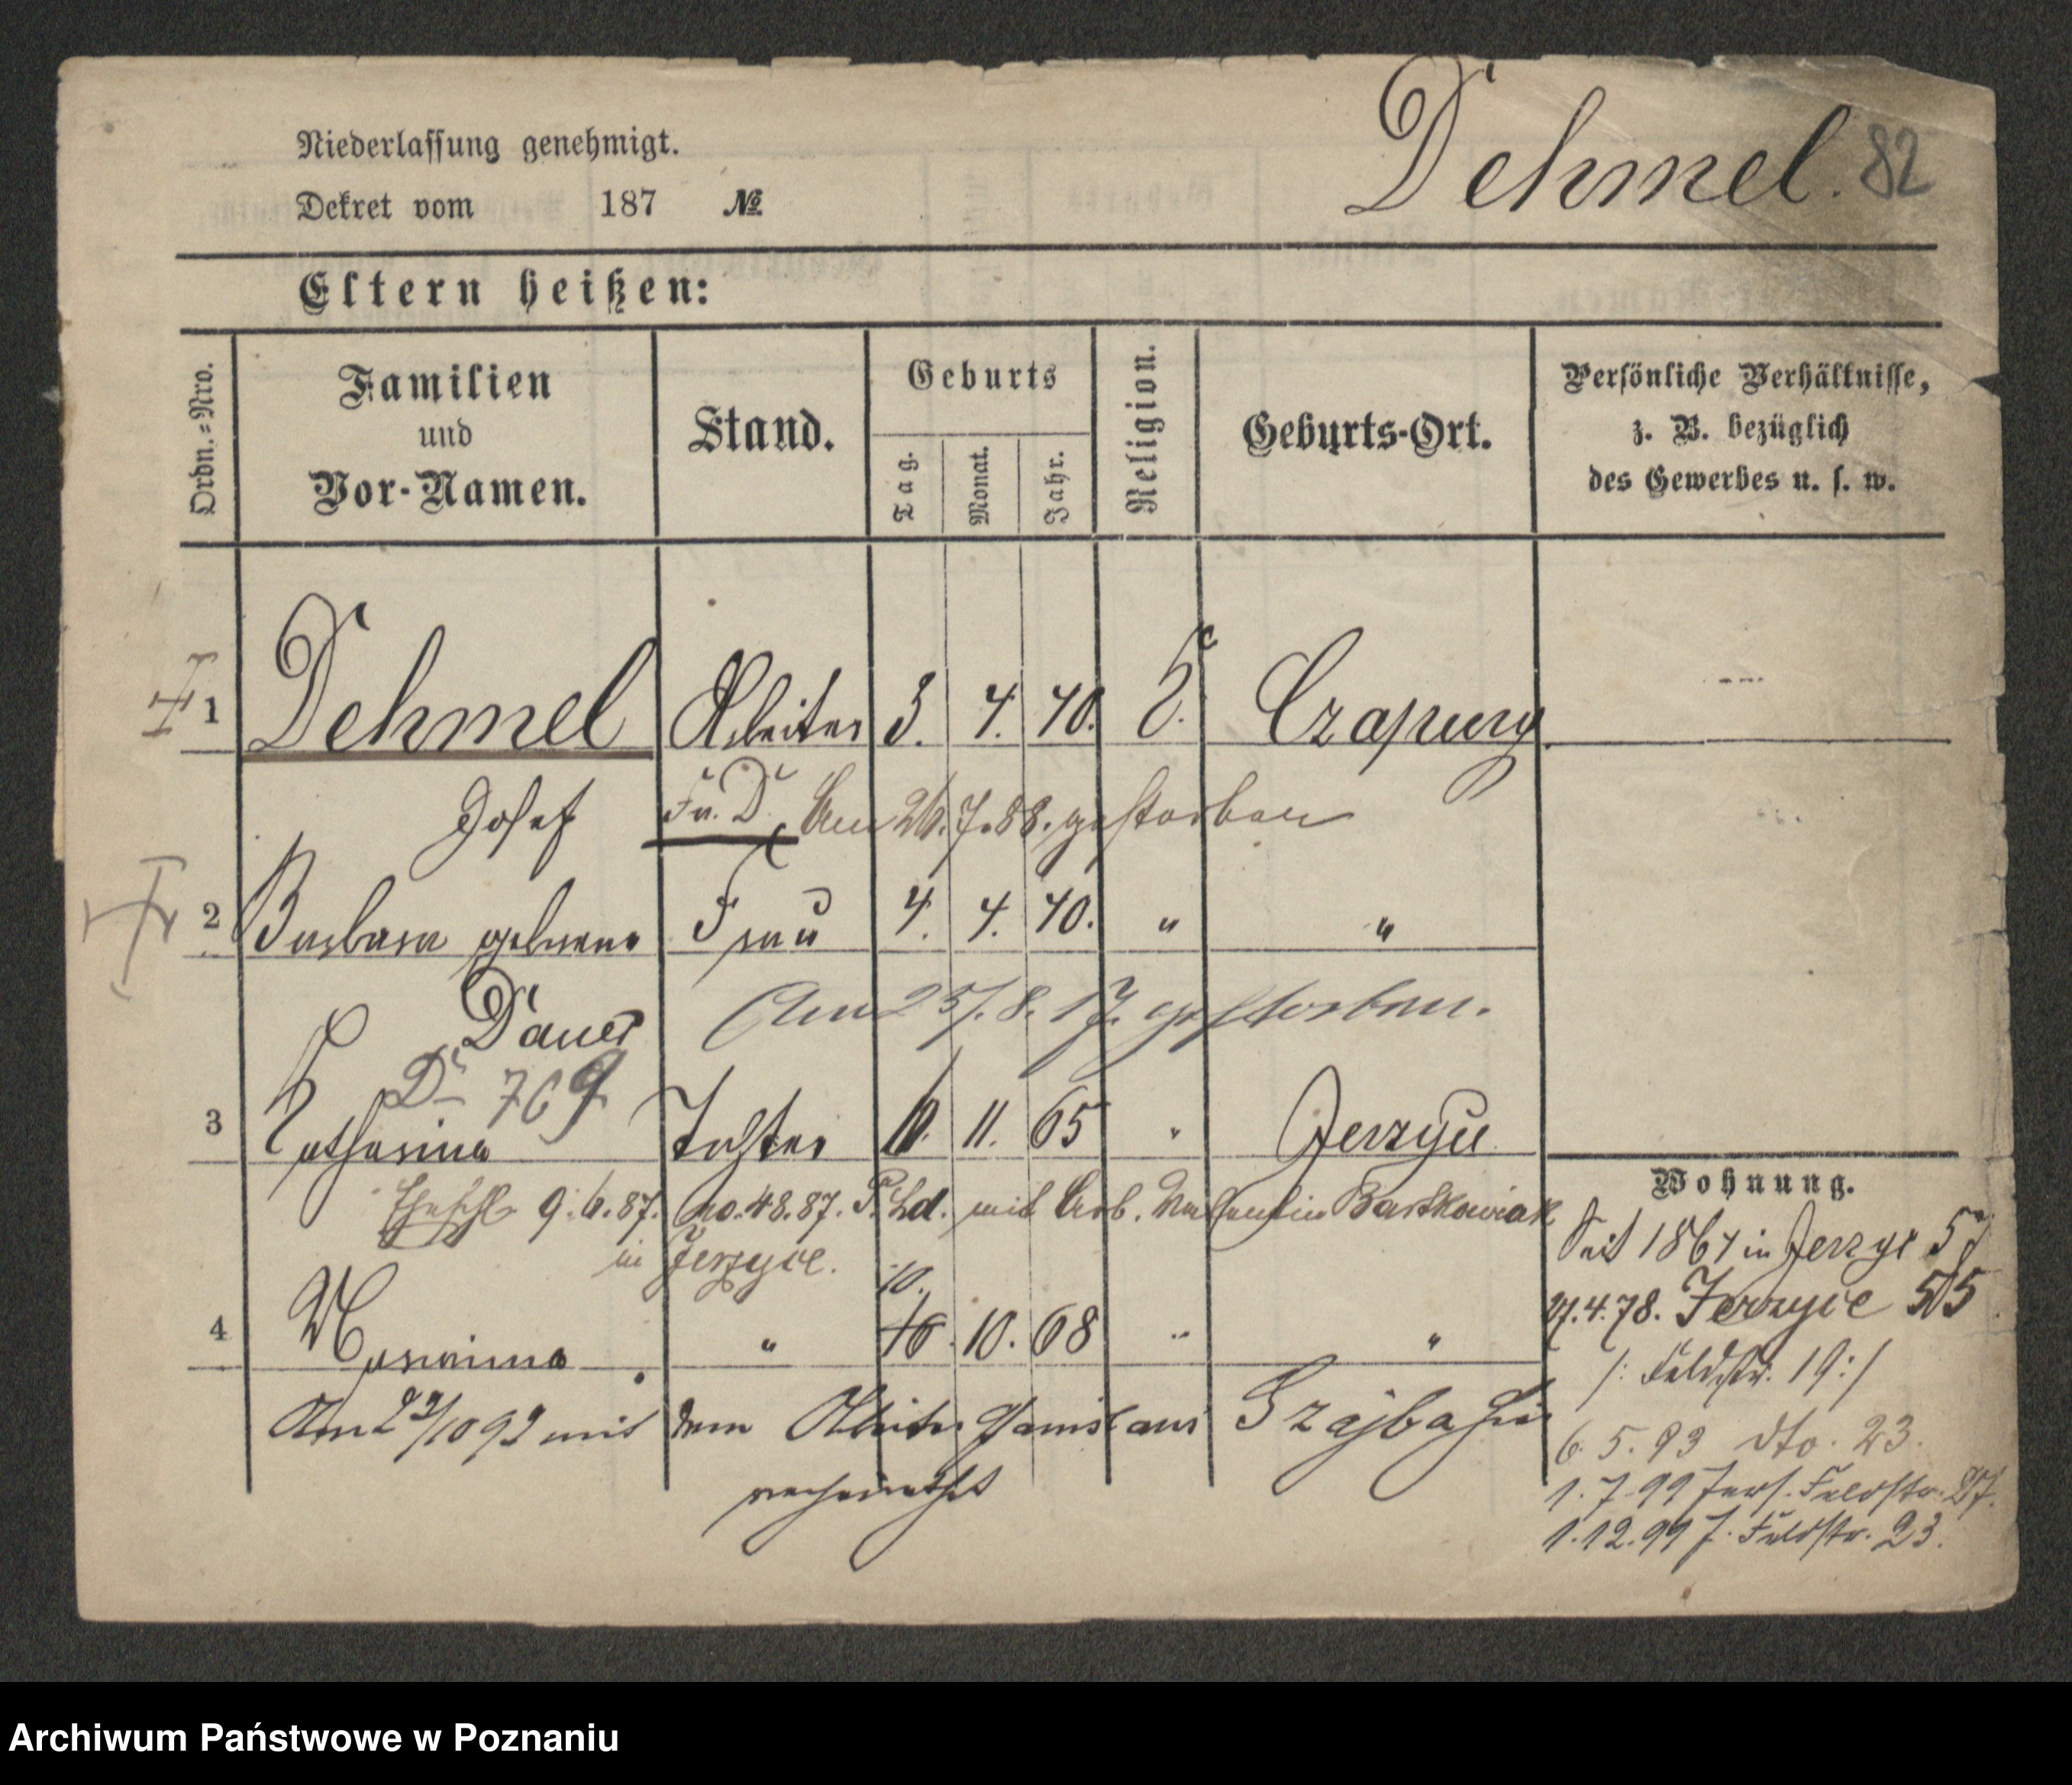 Dehmel. 82
Niederlassung genehmigt.
Dekret vom 187 №
Eltern heißen:
Ordn.=Nro.
Familien
und
Vor-Namen.
Stand.
Geburts
Tag.
Monat.
Jahr.
Religion.
Geburts-Ort.
Persönliche Verhältnisse,
z. B. bezüglich
des Gewerbes u. s. w.
1 Dehmel Arbeiter 3. 4. 40. Czapury
Josef Fr. D. Am 26.7.88. gestorben
2 Barbara geborene Frau 4. 4. 40. " "
Dauer Am 25/.8.17. gestorben.
D 769
3 Katharina Tochter 10. 11. 65 " Jerzyce
Ehschl. 9.6.87. No. 48.87. P. Ld. mit Arb. Valentin Bartkowiak
in Jerzyce.
10.
4 Marianna " 16. 10. 68 " "
Am 22/10 92 mit dem Arbeiter Stanislaus
verheirathet
Wohnung.
Seit 1864 in Jerzyce 57
27.4.78. Jerzyce 55
/: Feldstr. 19:/
6. 5. 93 dto. 23.
1. 7. 99 Jers. Feldstr. 27.
1.12.99 J. Feldstr. 23.
Archiwum Państwowe w Poznaniu